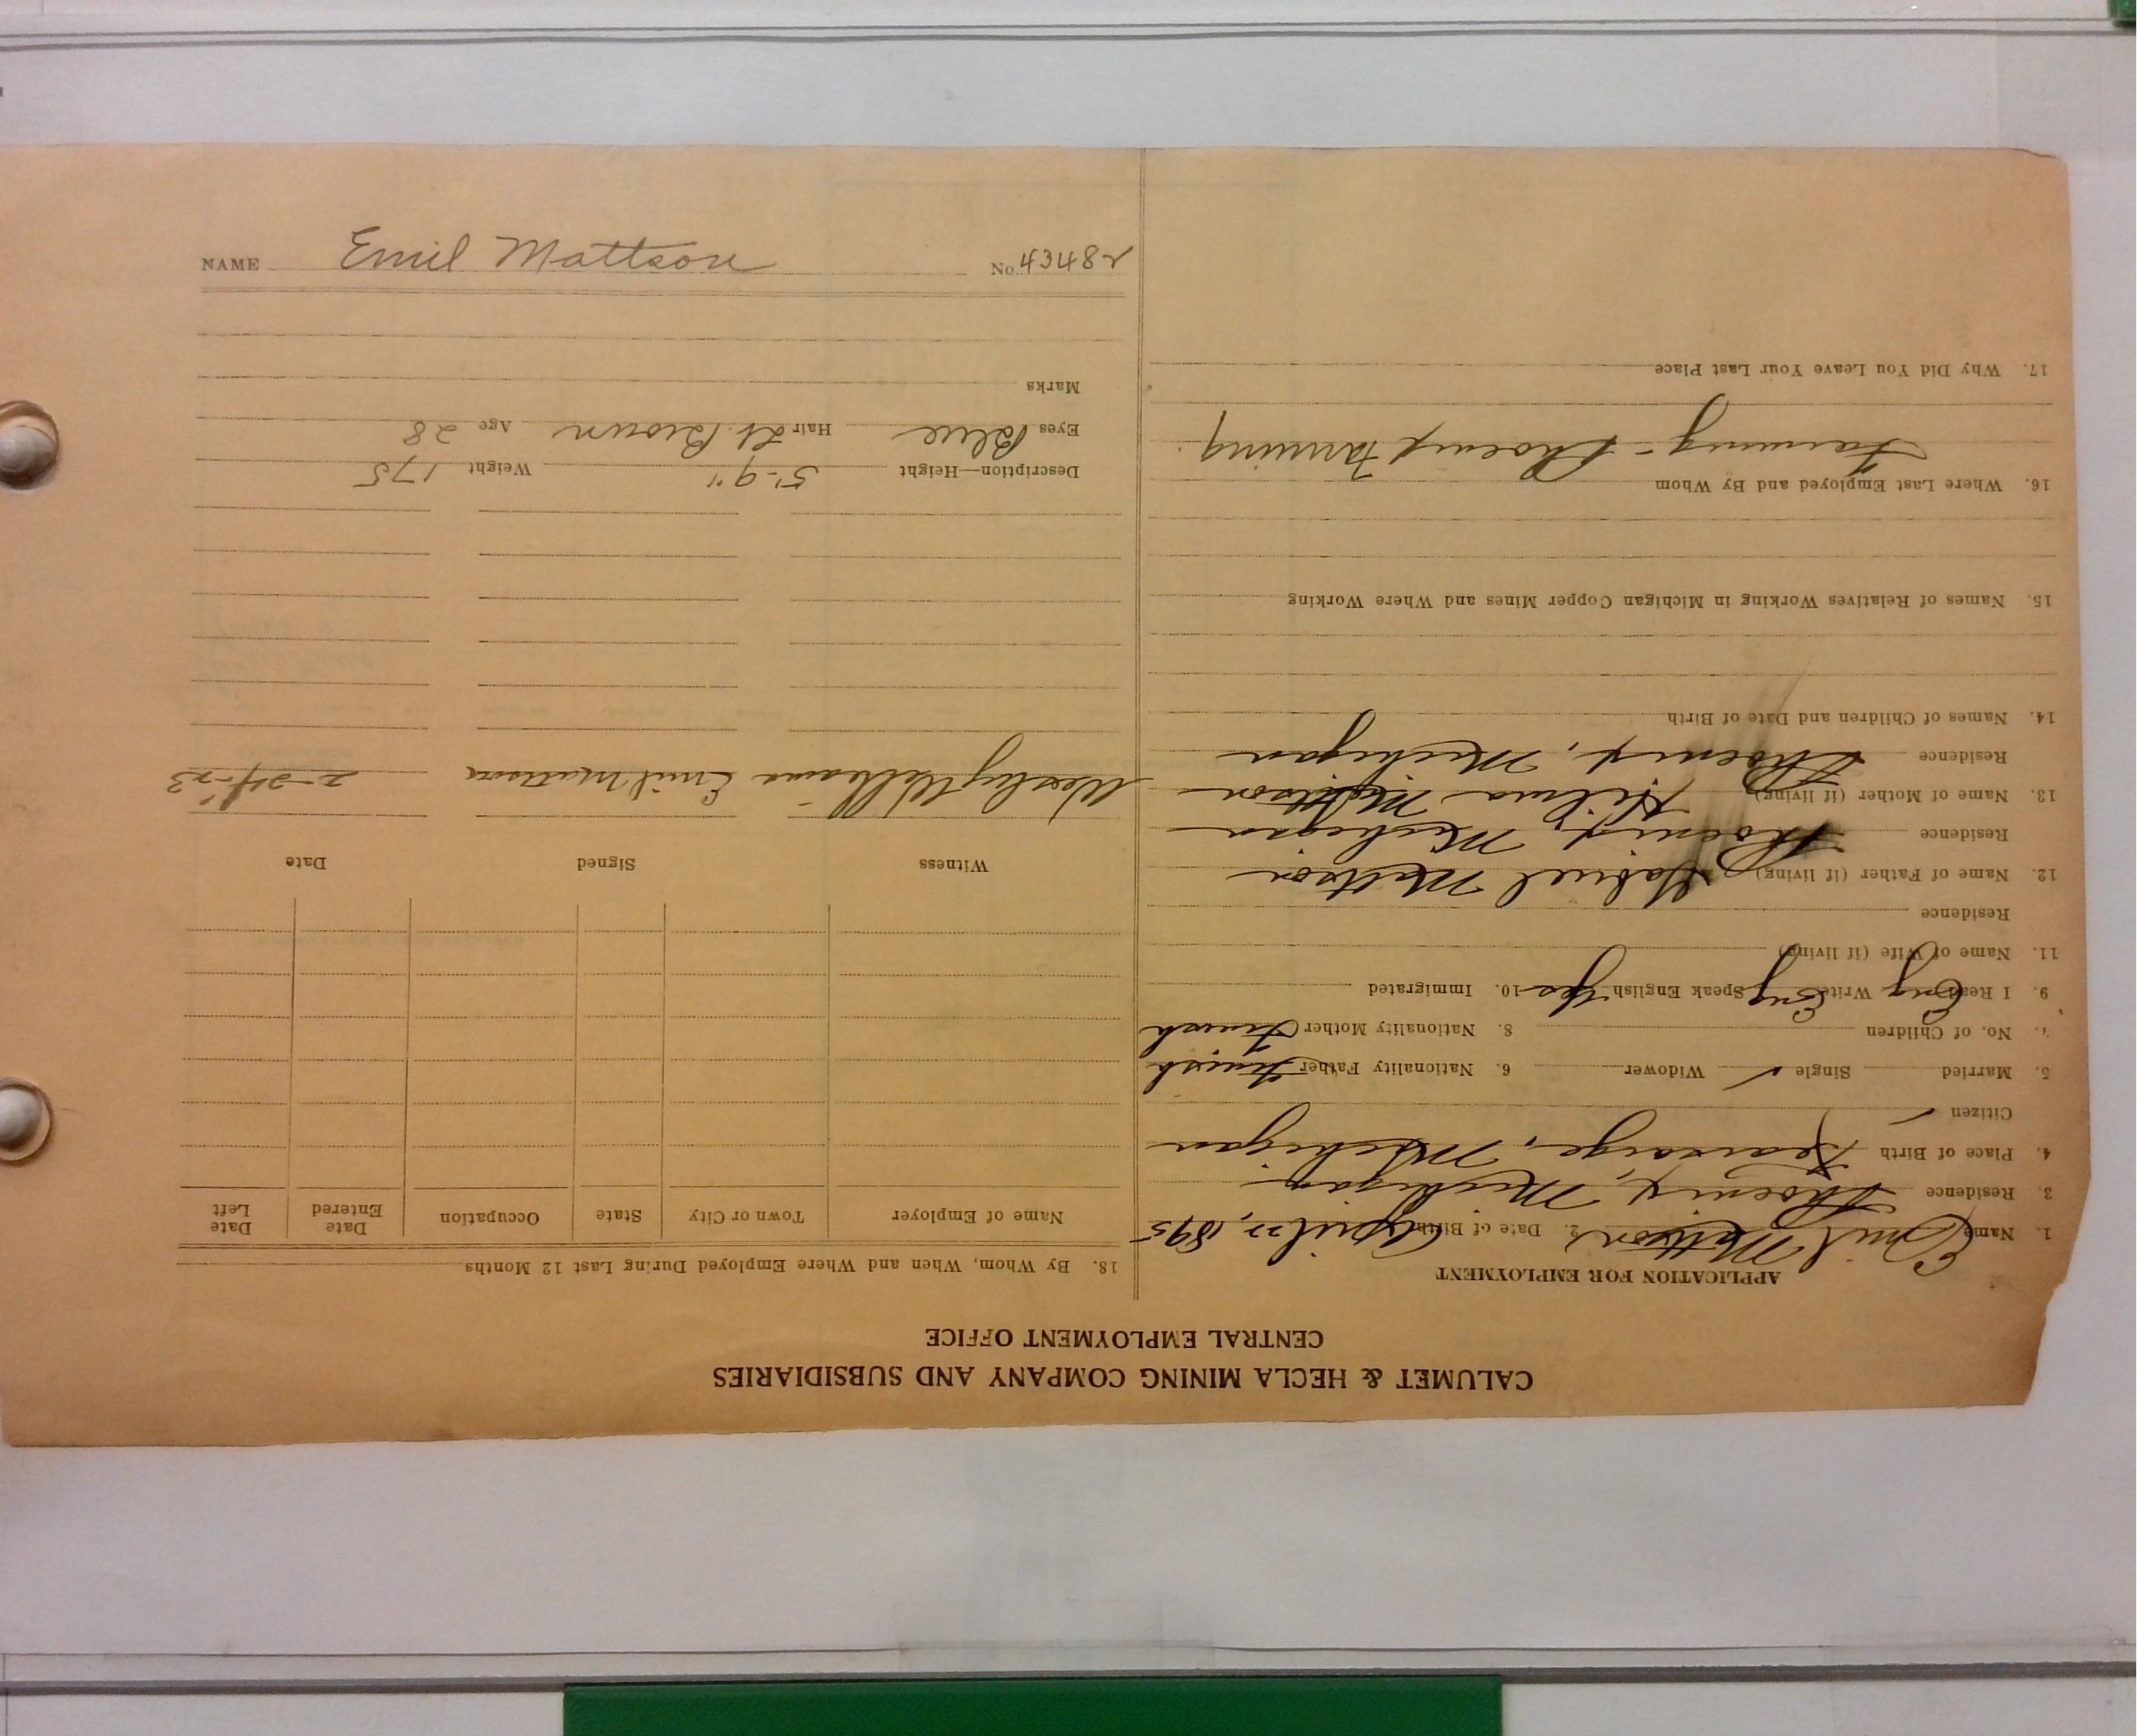 CALUMET & HECLA MINING COMPANY AND SUBSIDIARIES
CENTRAL EMPLOYMENT OFFICE
APPLICATION FOR EMPLOYMENT
1. Name Emil Mattson 2. Date of Birth April 22, 1895
3. Residence Phoenix, Michigan
4. Place of Birth Kearsarge, Michigan
Citizen ✓
5. Married Single ✓ Widower 6. Nationality Father Finnish
7. No. of Children 8. Nationality Mother Finnish
9. I Read Eng Write Eng Speak English Yes 10. Immigrated
11. Name of Wife (if living)
Residence
12. Name of Father (if living) Gabriel Mattson
Residence Phoenix, Michigan
13. Name of Mother (if living) Hilma Mattson
Residence Phoenix, Michigan
14. Names of Children and Date of Birth
15. Names of Relatives Working in Michigan Copper Mines and Where Working
16. Where Last Employed and By Whom
Farming - Phoenix Farming
17. Why Did You Leave Your Last Place
18. By Whom, When and Where Employed During Last 12 Months
Name of Employer Town or City State Occupation Date Entered Date Left
Witness Signed Date
Wesley Williams Emil Mattson 2-24-23
Description—Height 5'-9" Weight 175
Eyes Blue Hair Lt. Brown Age 28
Marks
NAME Emil Mattson No. 43482